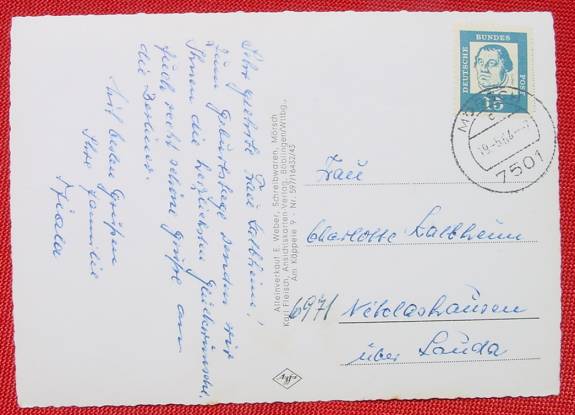 Sehr geehrte Frau Kalbheim!
Zum Geburtstage senden wir
Ihnen die herzlichsten Glückwünsche,
auch recht schöne Grüße an
die Berliner.
Mit besten Grüßen
Ihre Familie
Alleinverkauf E. Weber, Schreibwaren, Mörsch
Karl Fleisch, Ansichtskarten-Verlag, Böblingen/Wttbg.
Am Käppele 9 - Nr. 597/16432/43
DEUTSCHE BUNDES POST
15
7501
Frau
Charlotte Kalbheim
6971 Nikolashausen
über Lauda
Agfa